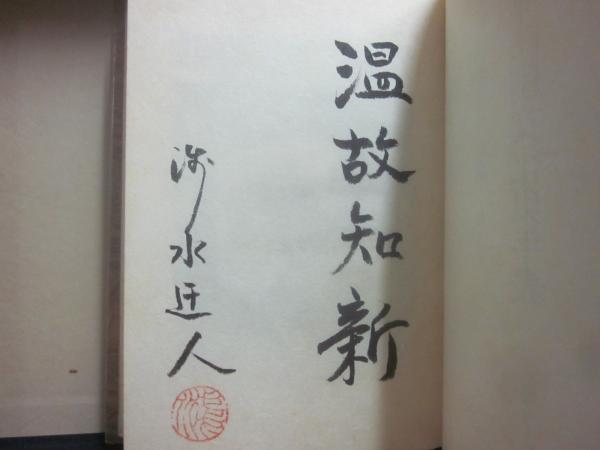 温故知新
水迂人